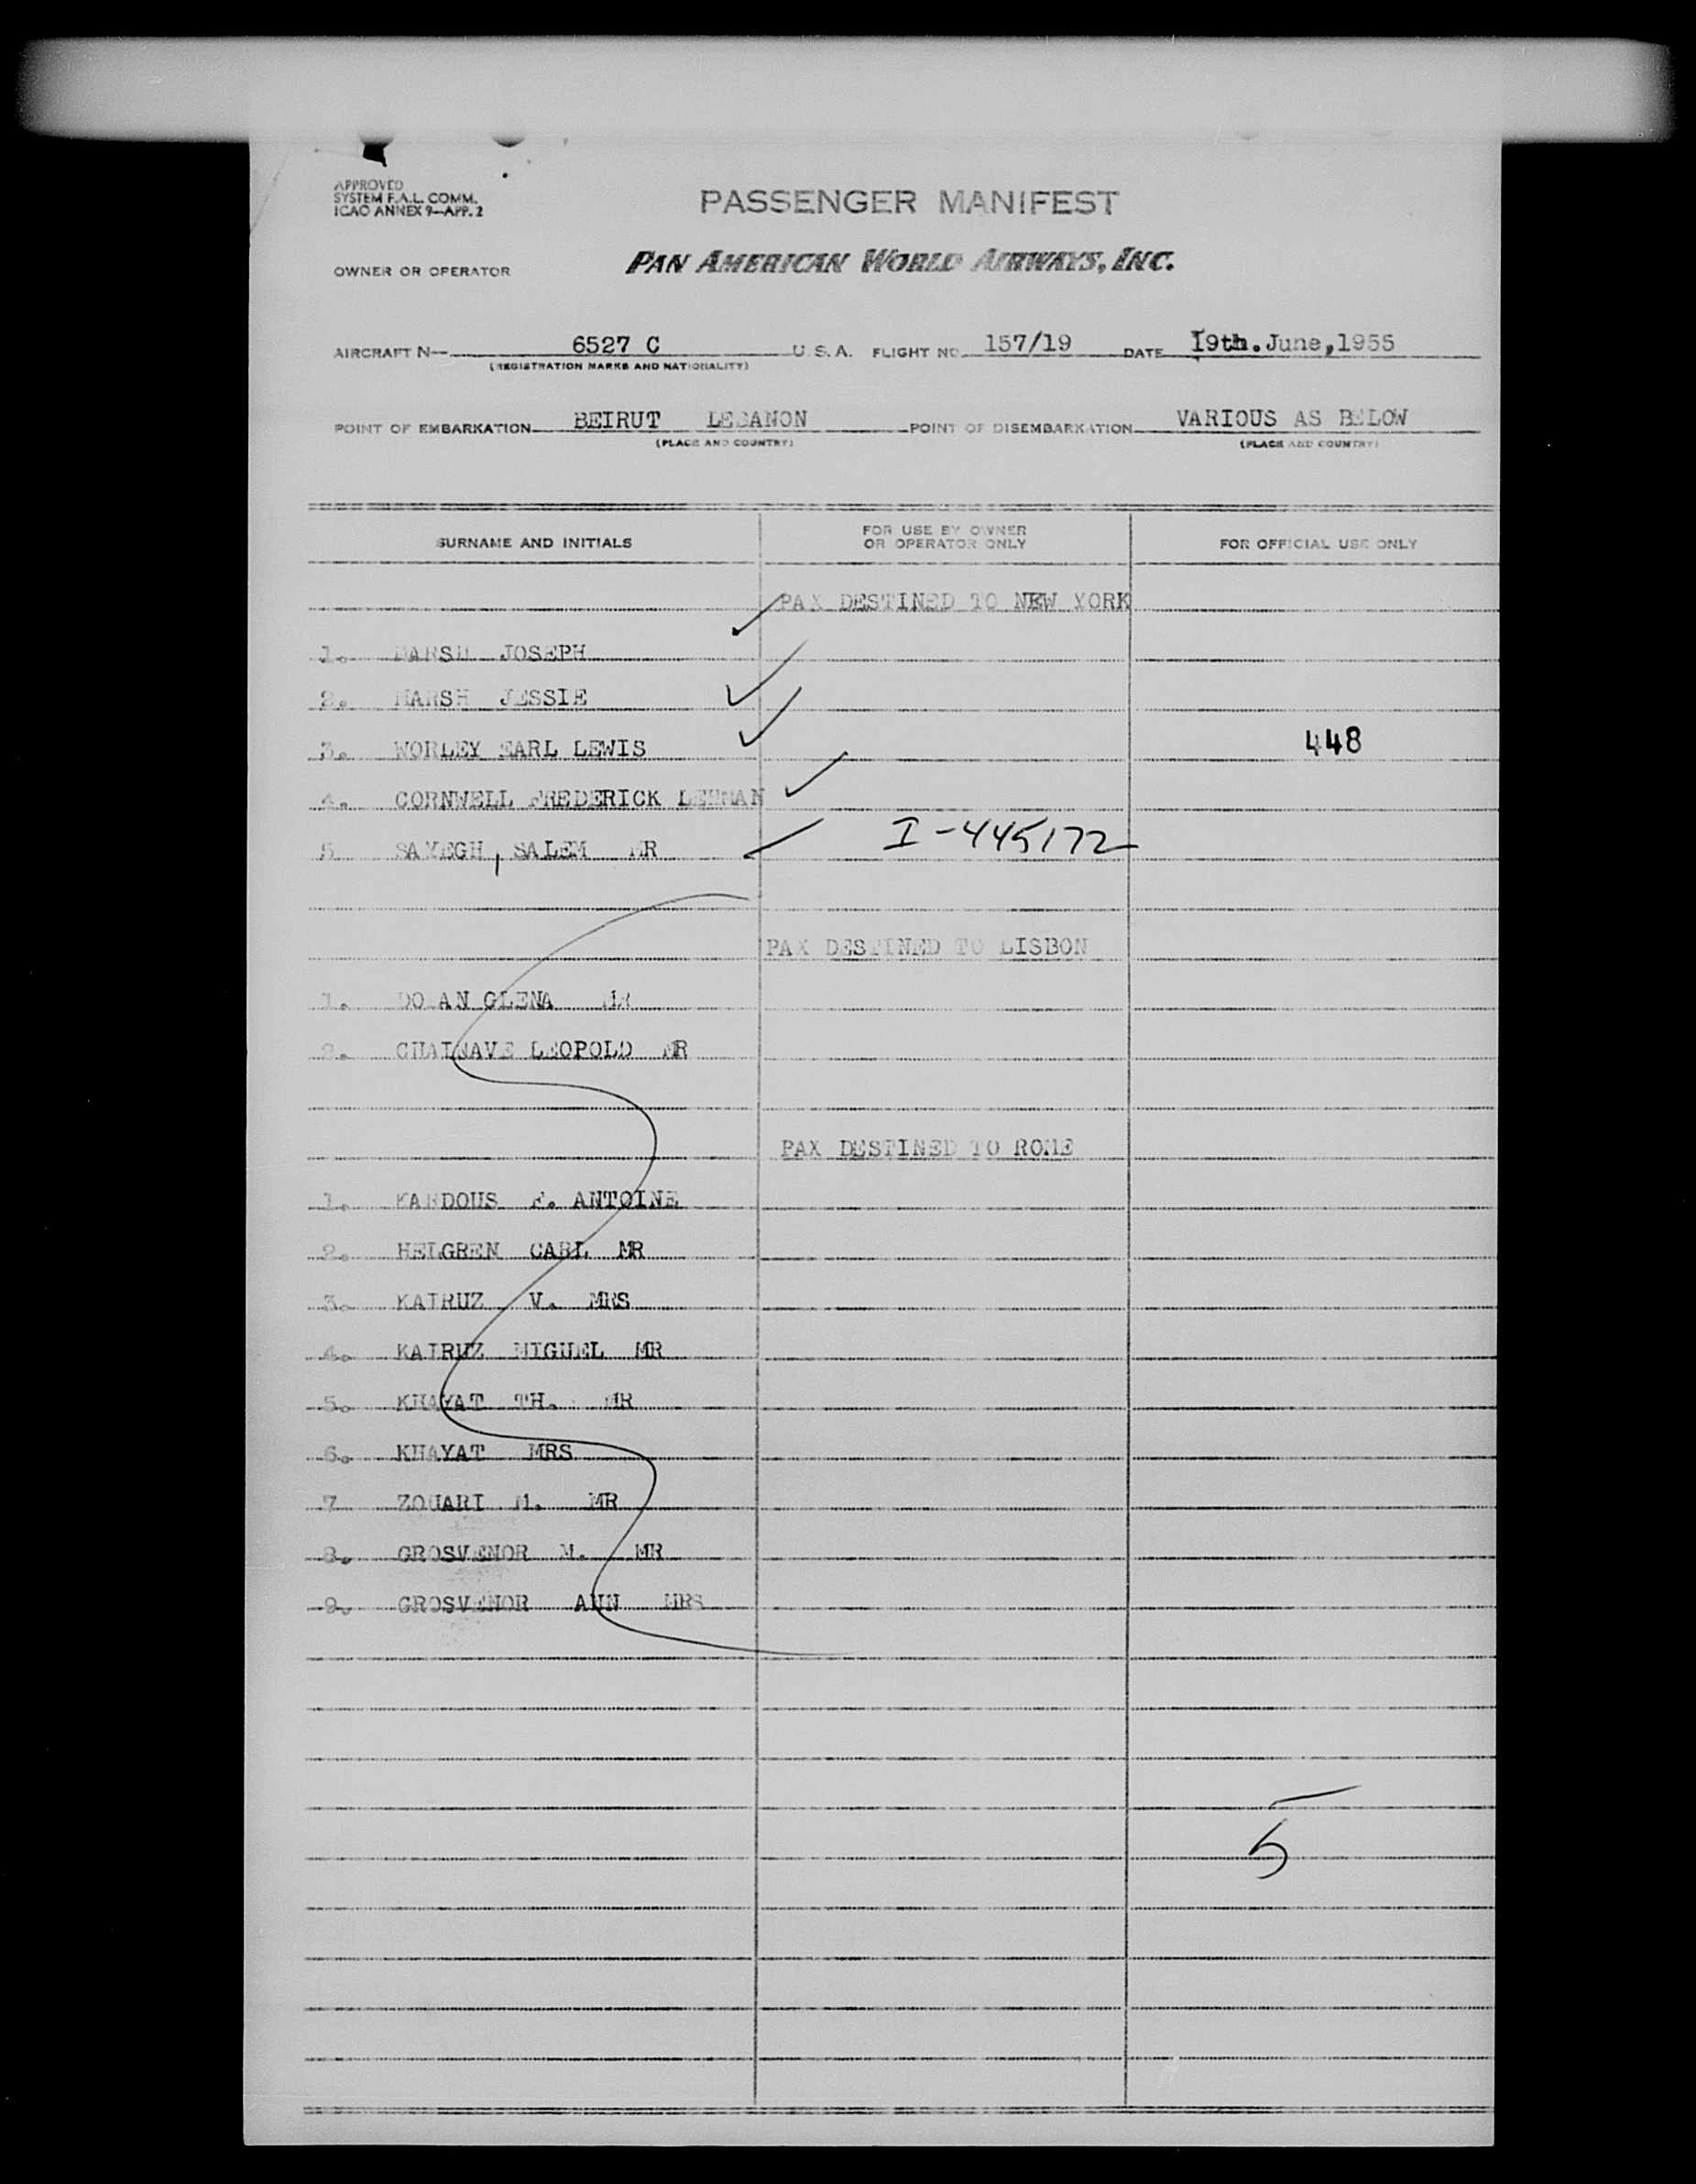 APPROVED
SYSTEM F.A.L. COMM.
ICAO ANNEX 9—APP. 2
PASSENGER MANIFEST
OWNER OR OPERATOR
PAN AMERICAN WORLD AIRWAYS, INC.
AIRCRAFT N— 6527 C U.S.A. FLIGHT NO. 157/19 DATE 19th.June,1955
(REGISTRATION MARKS AND NATIONALITY)
POINT OF EMBARKATION BEIRUT LEBANON POINT OF DISEMBARKATION VARIOUS AS BELOW
(PLACE AND COUNTRY) (PLACE AND COUNTRY)
SURNAME AND INITIALS
FOR USE BY OWNER
OR OPERATOR ONLY
FOR OFFICIAL USE ONLY
PAX DESTINED TO NEW YORK
1. MARSH JOSEPH
2. MARSH JESSIE
3. WORLEY EARL LEWIS 448
4. CORNWELL FREDERICK
5 SAYEGH, SALEM MR I-445172
PAX DESTINED TO LISBON
1. GLENA MR
2. LEOPOLD MR
PAX DESTINED TO ROME
1. KARDOUS ANTOINE
2. HELGREN CARL MR
3. KAIRUZ V. MRS
4. KAIRUZ MIGUEL MR
5. KHAYAT TH. MR
6. KHAYAT MRS
7 ZOUARI M. MR
8. GROSVENOR M. MR
9. GROSVENOR ANN MRS
5